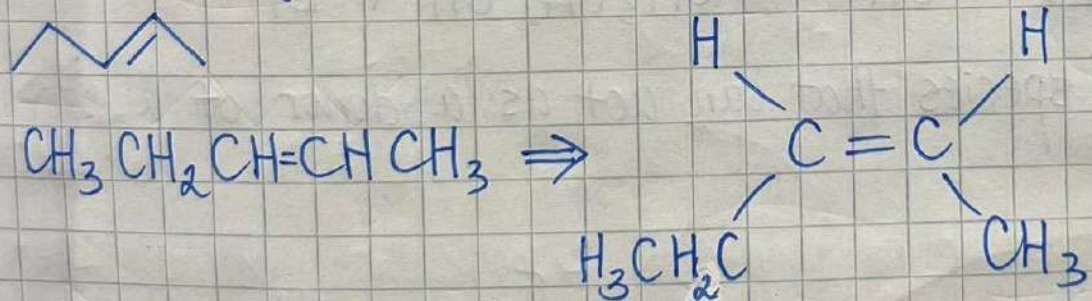 H H
CH₃CH₂CH=CHCH₃ ⇒ C = C
H₃CH₂C CH₃